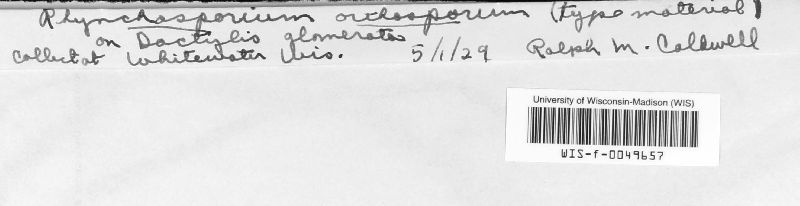 Rhynchosporium orthosporum (type material)
on Dactylis glomerata
Collect at Whitewater Wis. 5/1/29 Ralph M. Caldwell
University of Wisconsin-Madison (WIS)
WIS-f-0049657